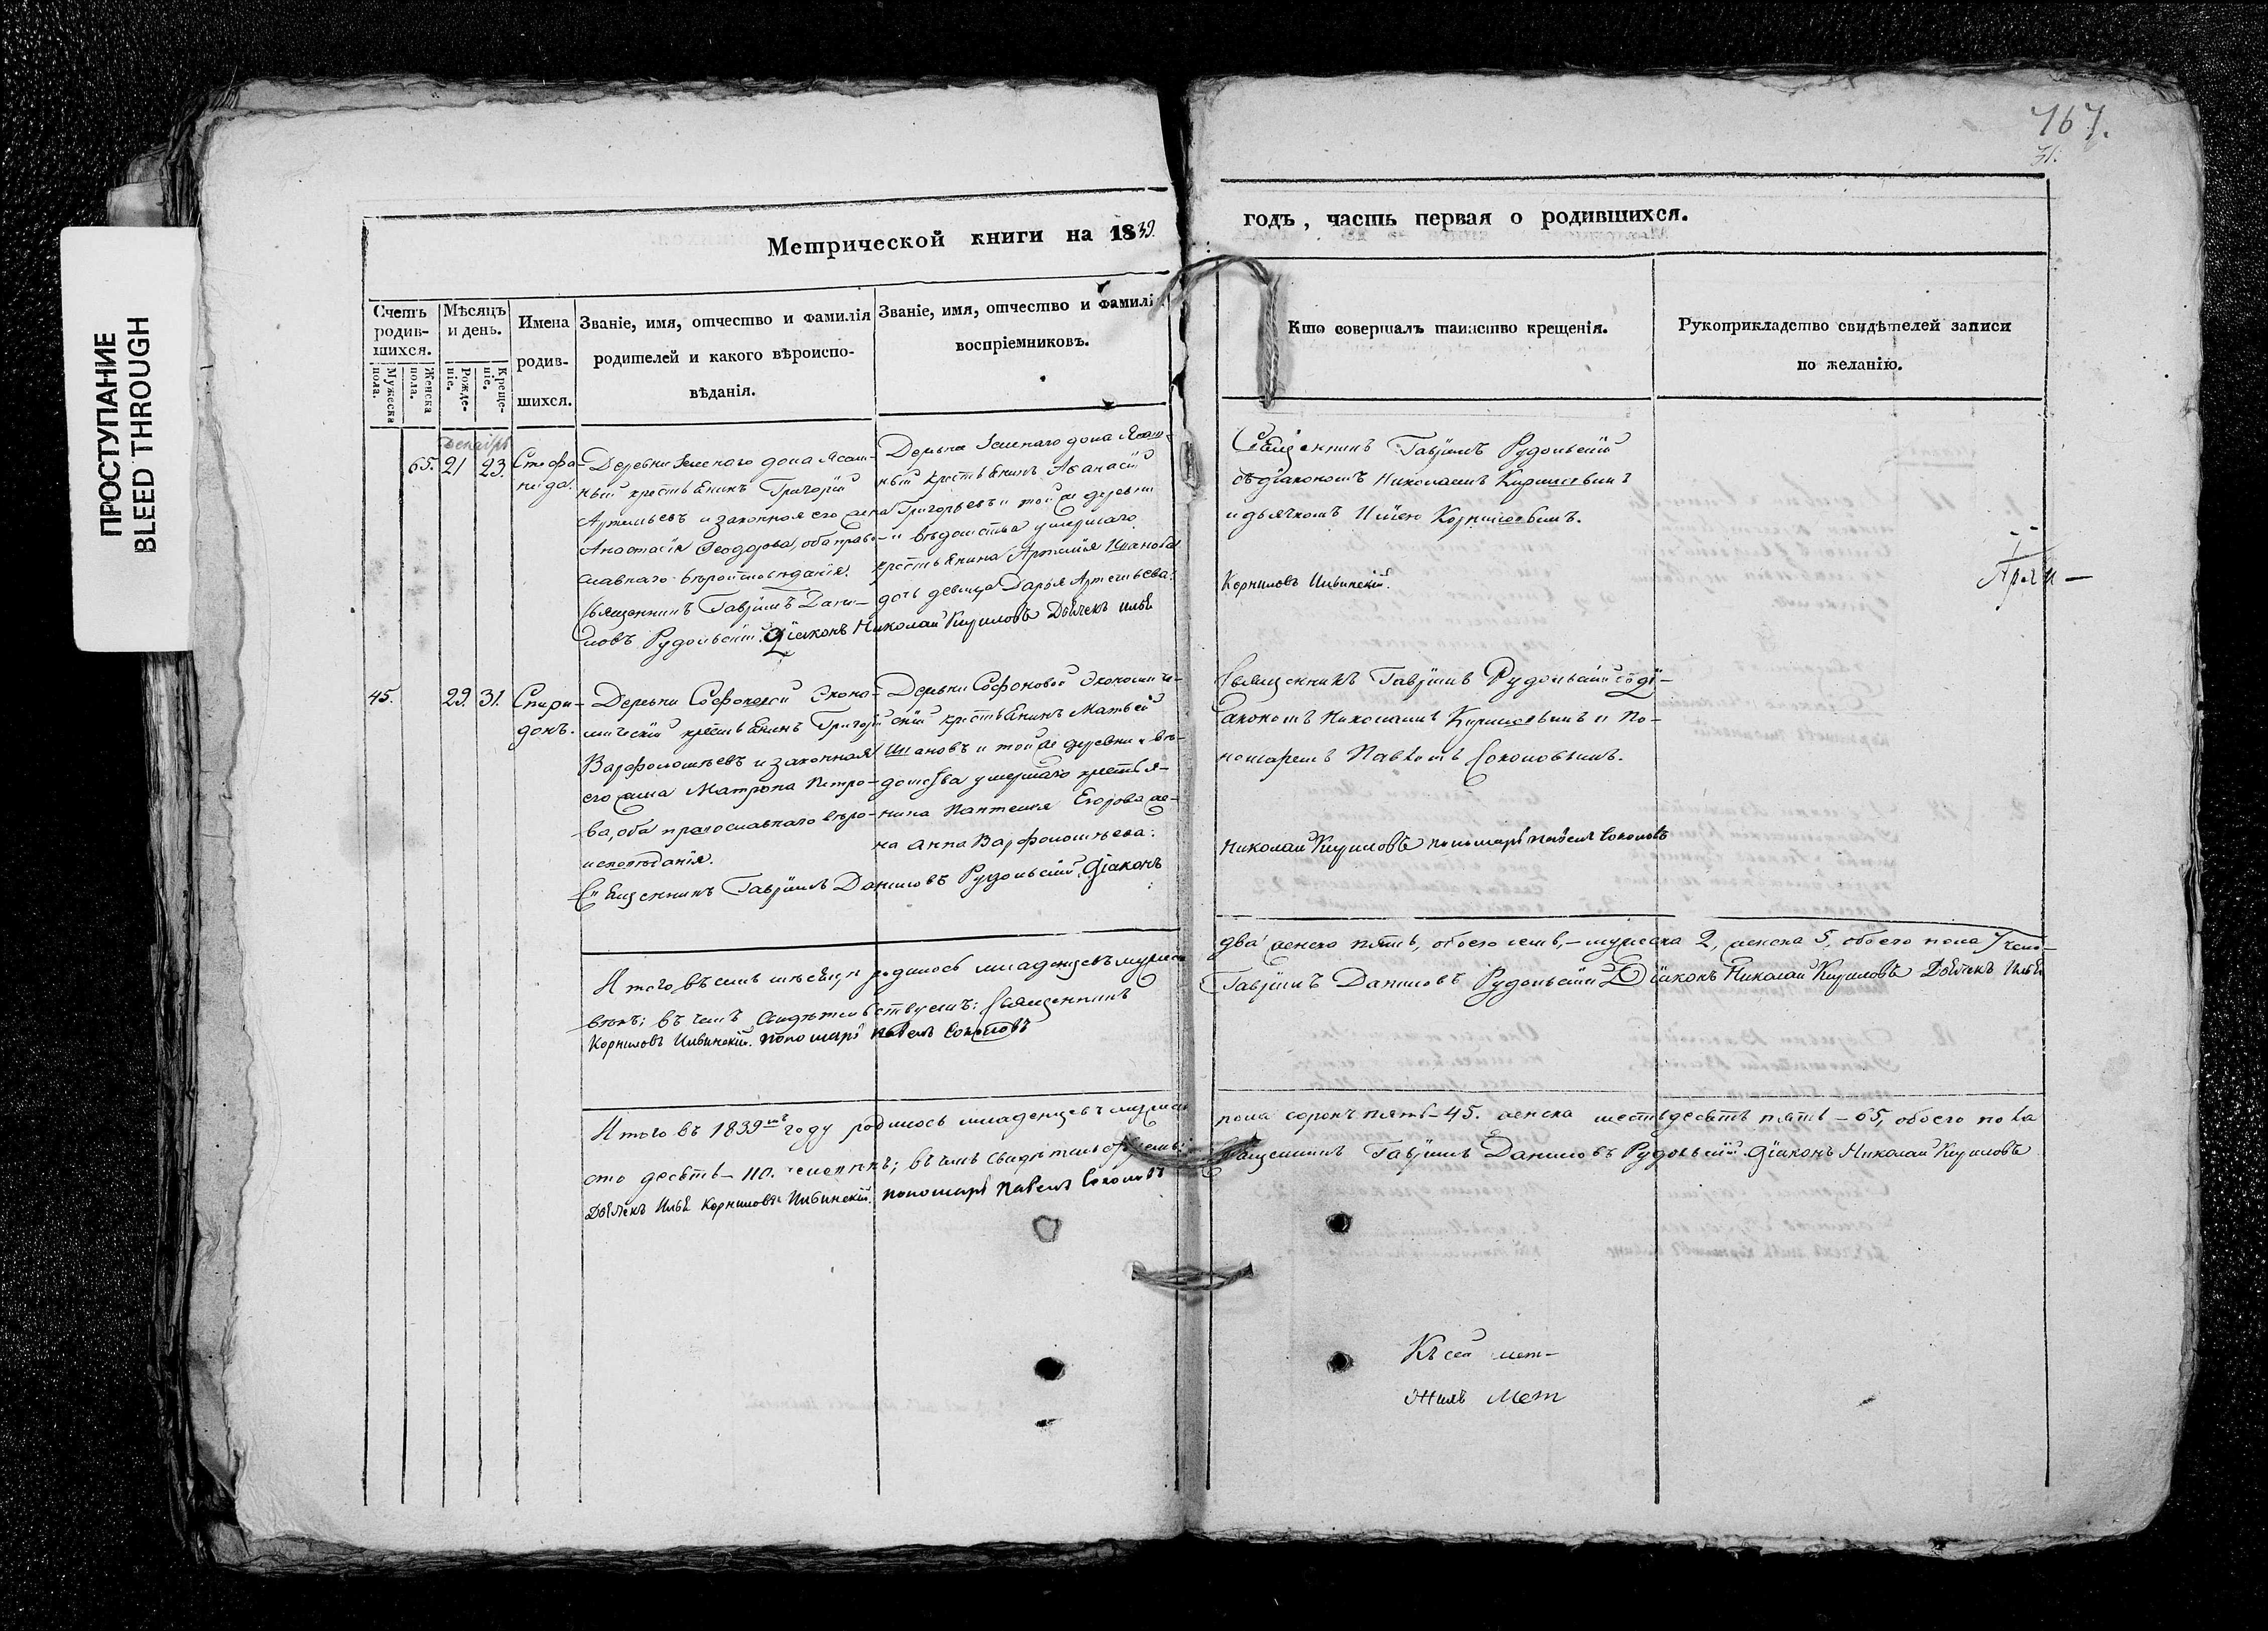 ПРОСТУПАНИЕ
BLEED THROUGH
167.
31.
Метрической книги на 1839.
годъ, часть первая о родившихся.
Счетъ родившихся.
Мужеска пола.
Женска пола.
Мѣсяцъ и день.
Рождение.
Крещение.
Имена родившихся.
Званіе, имя, отчество и фамилія
родителей и какого вѣроиспо-
вѣданія.
Званіе, имя, отчество и фамилія
воспріемниковъ.
Кто совершалъ таинство крещенія.
Рукоприкладство свидѣтелей записи
по желанію.
Декабрь
65. 21 23. Стефа-
нида.
Деревни Зеленаго дола Ясаш-
ный крестьянинъ Григорій
Артемьевъ и законная его жена
Анастасія Ѳеодорова, оба право-
славнаго вѣроисповѣданія.
Священникъ Гавріилъ Дани-
ловъ Рудольскій Діаконъ Николай Кириловъ Дьячекъ Илья
Деревни Зеленаго дола Ясаш-
ный крестьянинъ Аѳанасій
Григорьевъ и той же деревни
и вѣдомства умершаго
крестьянина Артемія Иванова
дочь девица Дарья Артемьева.
Священникъ Гавріилъ Рудольскій
съ діакономъ Николаемъ Кириловымъ
и дьячкомъ Ильею Корниловымъ.
Корниловъ Ильинскій.
45. 29. 31. Спири-
донъ.
Деревни Софоновой Эконо-
мическій крестьянинъ Григорій
Варфоломѣевъ и законная
его жена Матрона Петро-
ва, оба православнаго вѣро-
исповѣданія.
Священникъ Гавріилъ Даниловъ Рудольскій Діаконъ
Деревни Софоновой Экономиче-
скій крестьянинъ Матвей
Ивановъ и той же деревни и вѣ-
домства умершаго крестья-
нина Пантелея Егорова же-
на Анна Варфоломѣева.
Священникъ Гавріилъ Рудольскій съ ді-
акономъ Николаемъ Кириловымъ и По-
номаремъ Павломъ Соколовымъ.
Николай Кириловъ пономарь Павелъ Соколовъ
Итого въ семъ мѣсяцѣ родилось младенцевъ мужеска
два женска пять, обоего семь,-мужеска 2, женска 5, обоего пола 7 чело-
вѣкъ; въ чемъ свидѣтельствуемъ: Священникъ
Гавріилъ Даниловъ Рудольскій Діаконъ Николай Кириловъ Дьячекъ Илья
Корниловъ Ильинскій. пономарь Павелъ Соколовъ
Итого въ 1839мъ году родилось младенцевъ мужеска
пола сорокъ пять-45. женска шестьдесятъ пять-65, обоего пола
сто десять-110. человѣкъ; въ чемъ свидѣтельствуемъ:
Священникъ Гавріилъ Даниловъ Рудольскій Діаконъ Николай Кириловъ
Дьячекъ Илья Корниловъ Ильинскій. пономарь Павелъ Соколовъ
Къ сей мет-